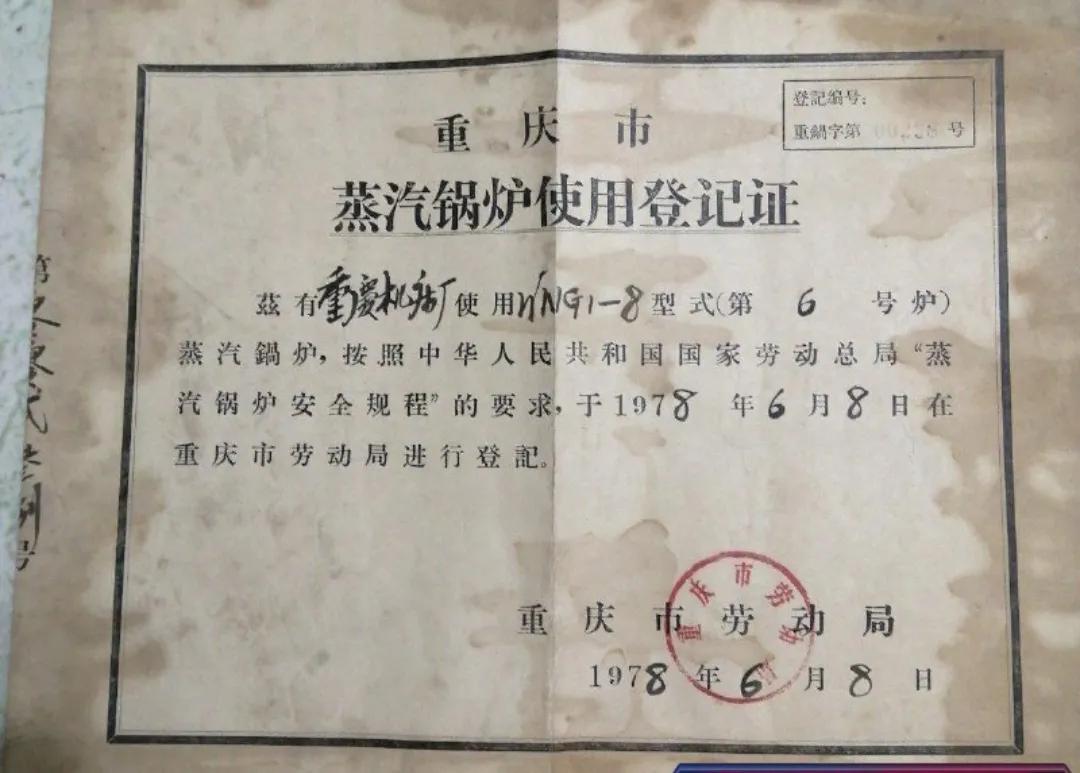 登記编号：
重鍋字第 号
重庆市
蒸汽锅炉使用登记证
茲有重庆机床厂使用 型式(第 6 号炉)
蒸汽鍋炉，按照中华人民共和国国家劳动总局“蒸
汽锅炉安全规程”的要求，于1978年6月8日在
重庆市劳动局进行登記。
重庆市劳动局
1978年6月8日
重庆市劳动局
第
号